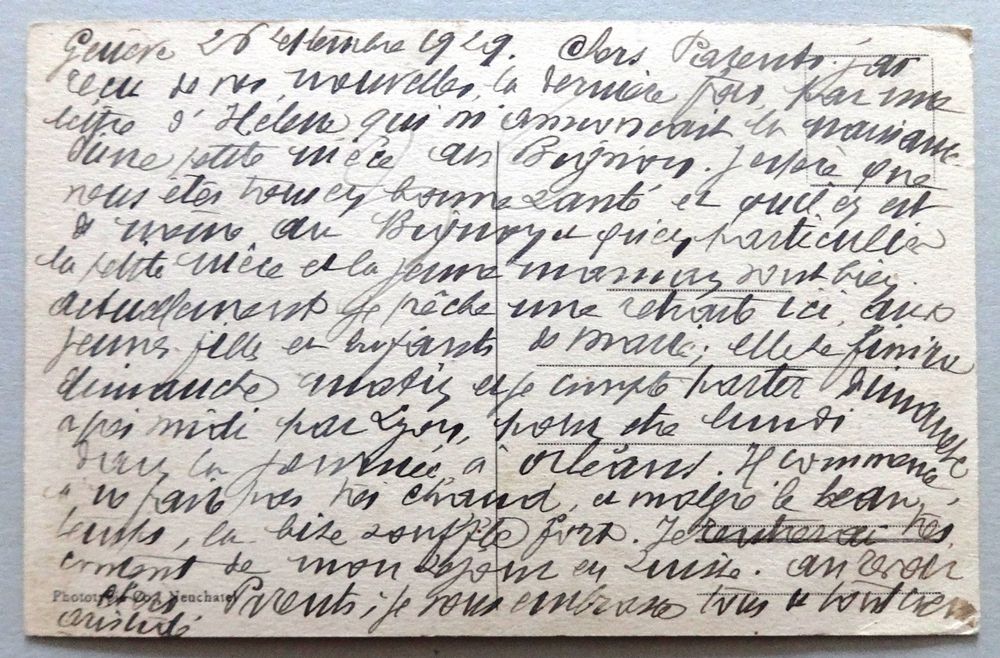 Genève 26 septembre 1929. Chers Parents. j'ai
reçu de vos nouvelles, la dernière fois, par une
lettre d'Hélène qui m'annonçait la naissance
d'une petite nièce au Bignon. J'espère que
vous êtes tous en bonne santé et qu'il en est
de même au Bignon et qu'en particulier
la petite nièce et la jeune maman vont bien.
Actuellement je prêche une retraite ici, aux
jeunes filles et enfants de Marie; elle se finira
dimanche matin et je compte partir dimanche
après midi par Lyon, pour être lundi
dans la journée, à Orléans. Il commence
à ne faire pas très chaud, et malgré le beau
temps, la bise souffle fort. Je rentrerai très
content de mon séjour en Suisse. au revoir
chers Parents; je vous embrasse tous et
Phototypie Co., Neuchatel